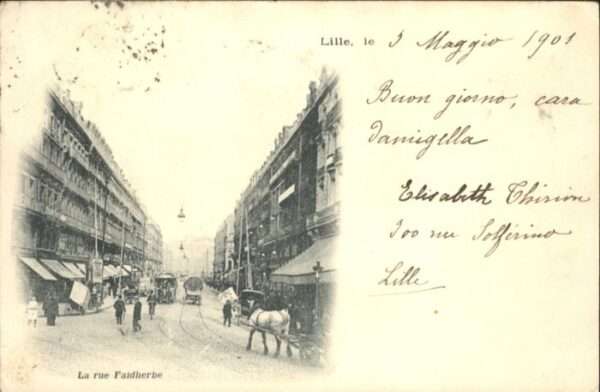 Lille, le 3 Maggio 1901
Buon giorno, cara
damigella
Elisabeth Thirion
300 rue Solférino
Lille
La rue Faidherbe